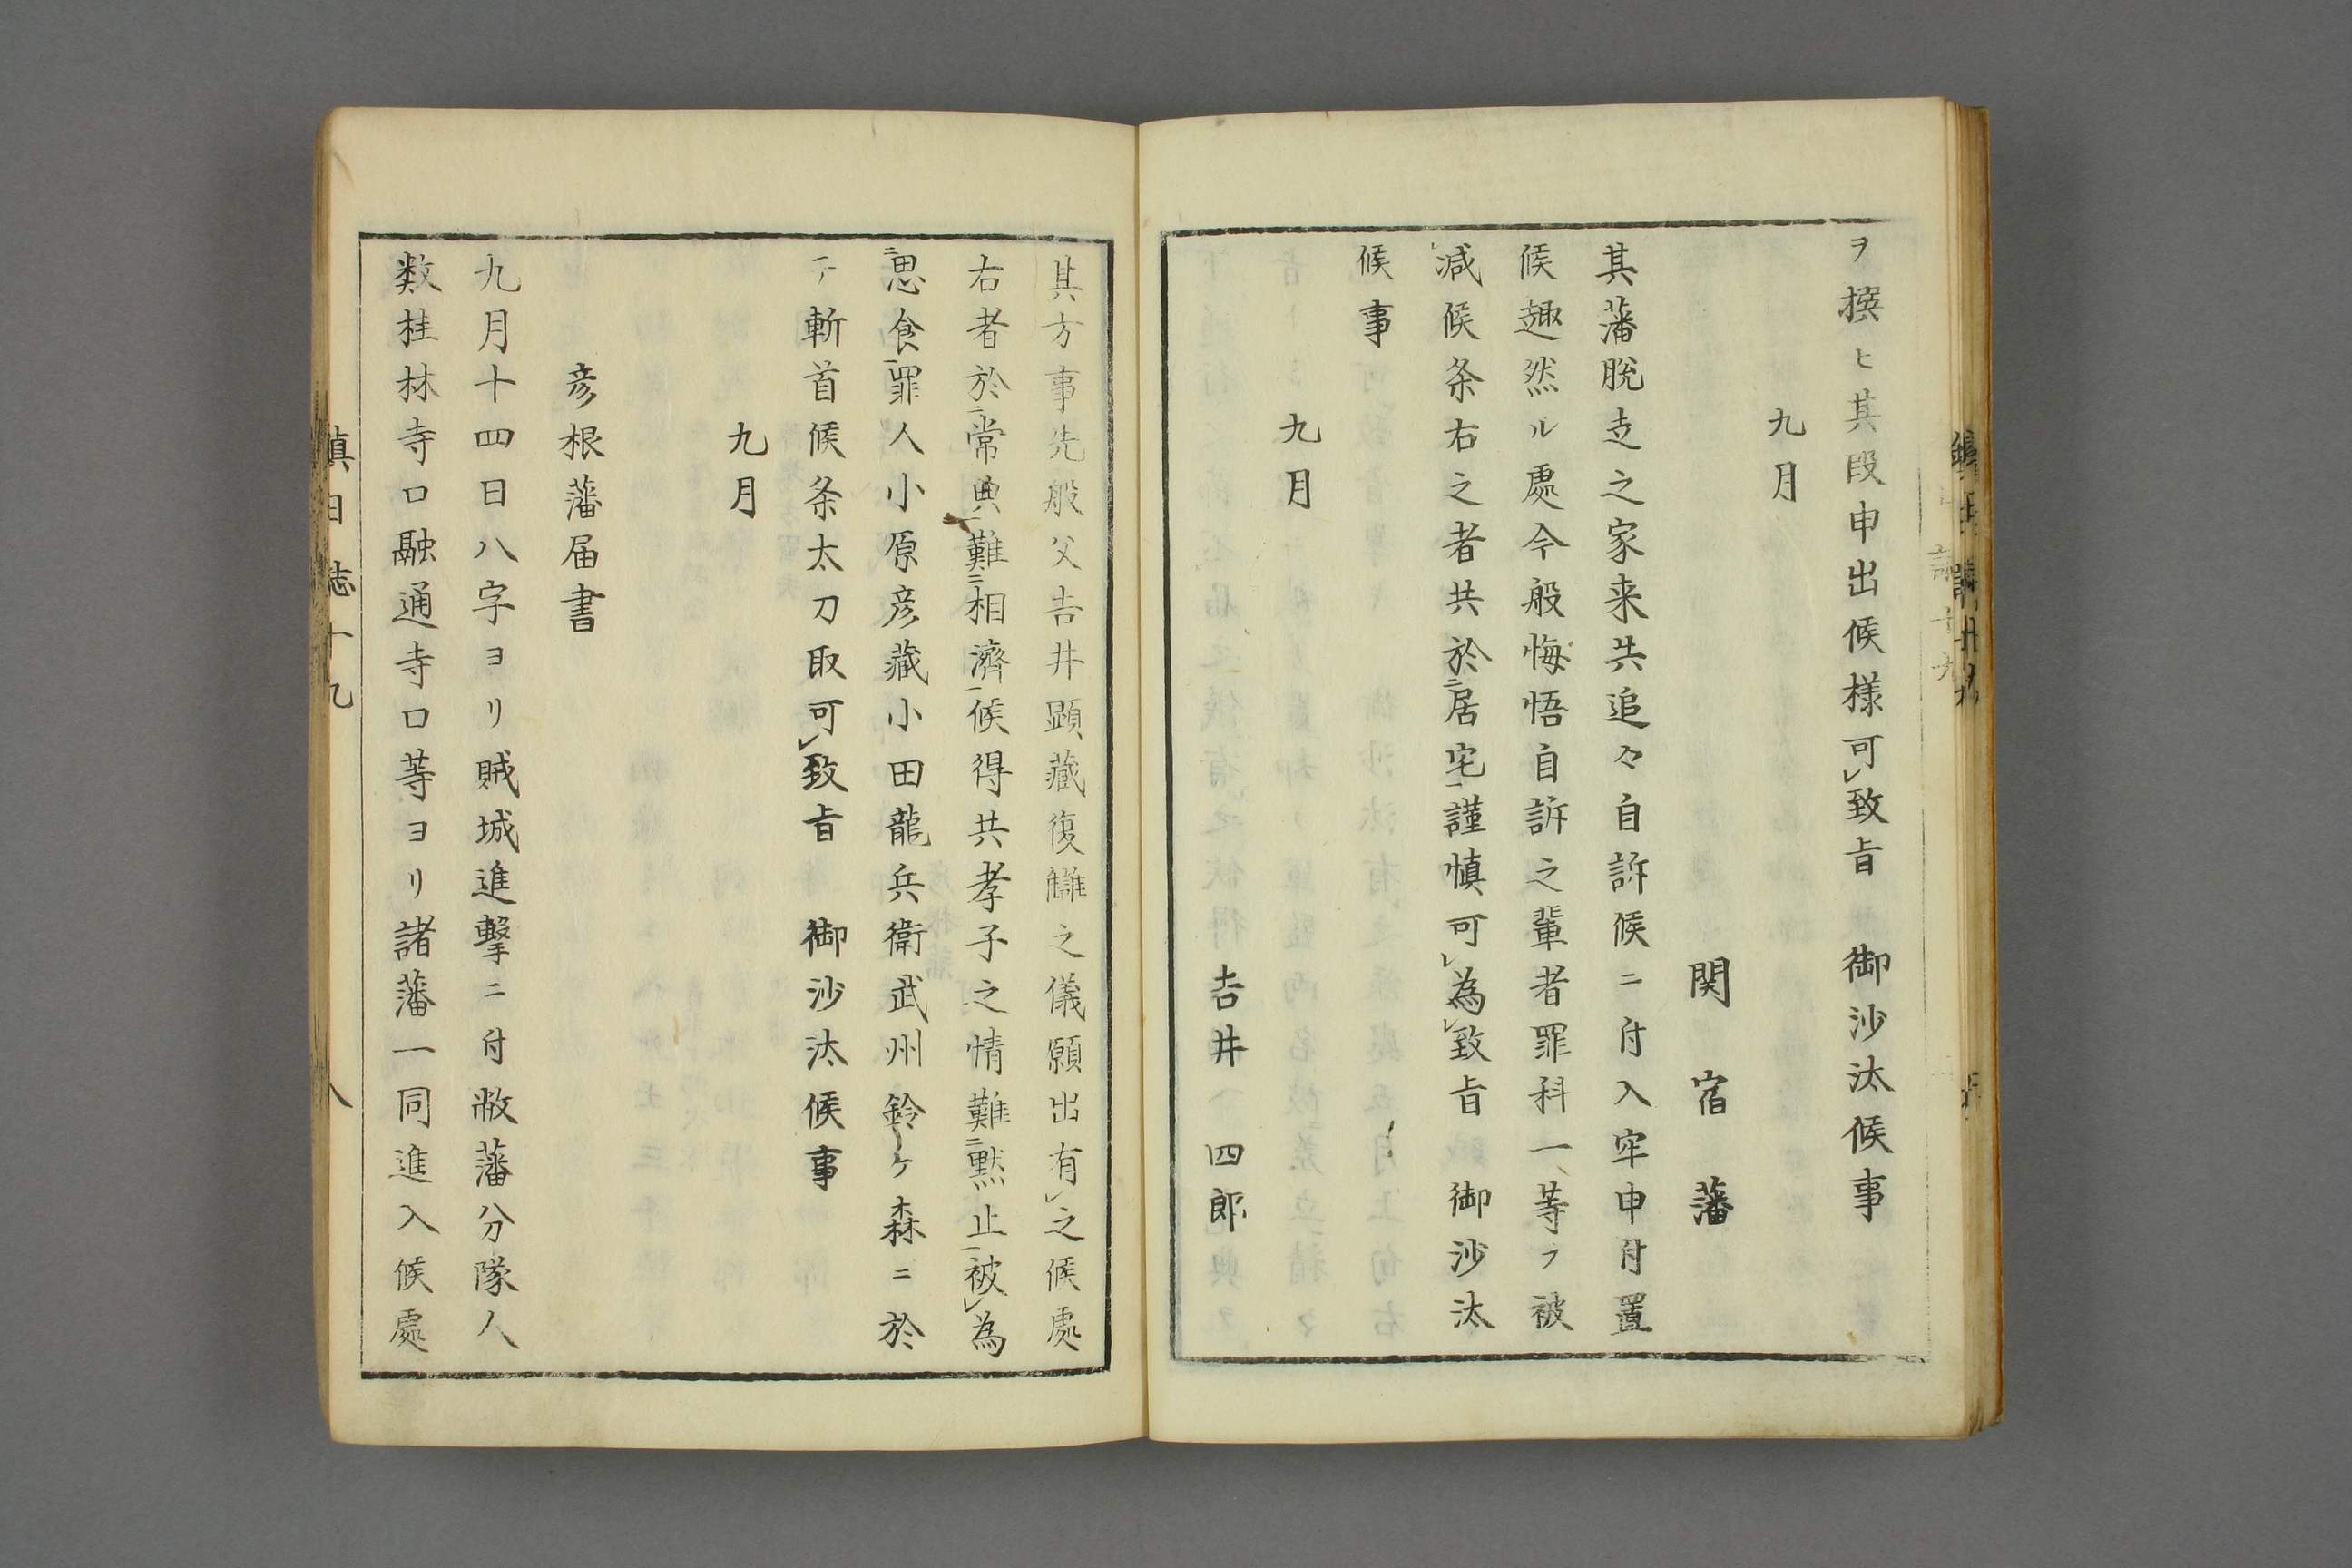 ヲ撰ヒ其段申出候様可㆑致旨　御沙汰候事
九月
関宿藩
其藩脱走之家来共追々自訴候ニ付入牢申付置
候趣然ル處今般悔悟自訴之輩者罪科一等ヲ被
㆑減候条右之者共於㆓居宅㆒謹慎可㆑為㆑致旨　御沙汰
候事
九月
吉井四郎
其方事先般父吉井顕藏復讎之儀願出有㆑之候處
右者於㆓常典㆒難㆓相濟㆒候得共孝子之情難㆓黙止㆒被㆑為
㆓思食㆒罪人小原彦藏小田龍兵衛武州鈴ヶ森ニ於
テ斬首候条太刀取可㆑致旨　御沙汰候事
九月
彦根藩届書
九月十四日八字ヨリ賊城進撃ニ付敝藩分隊人
数桂林寺口融通寺口等ヨリ諸藩一同進入候處
鎮日誌十九
八